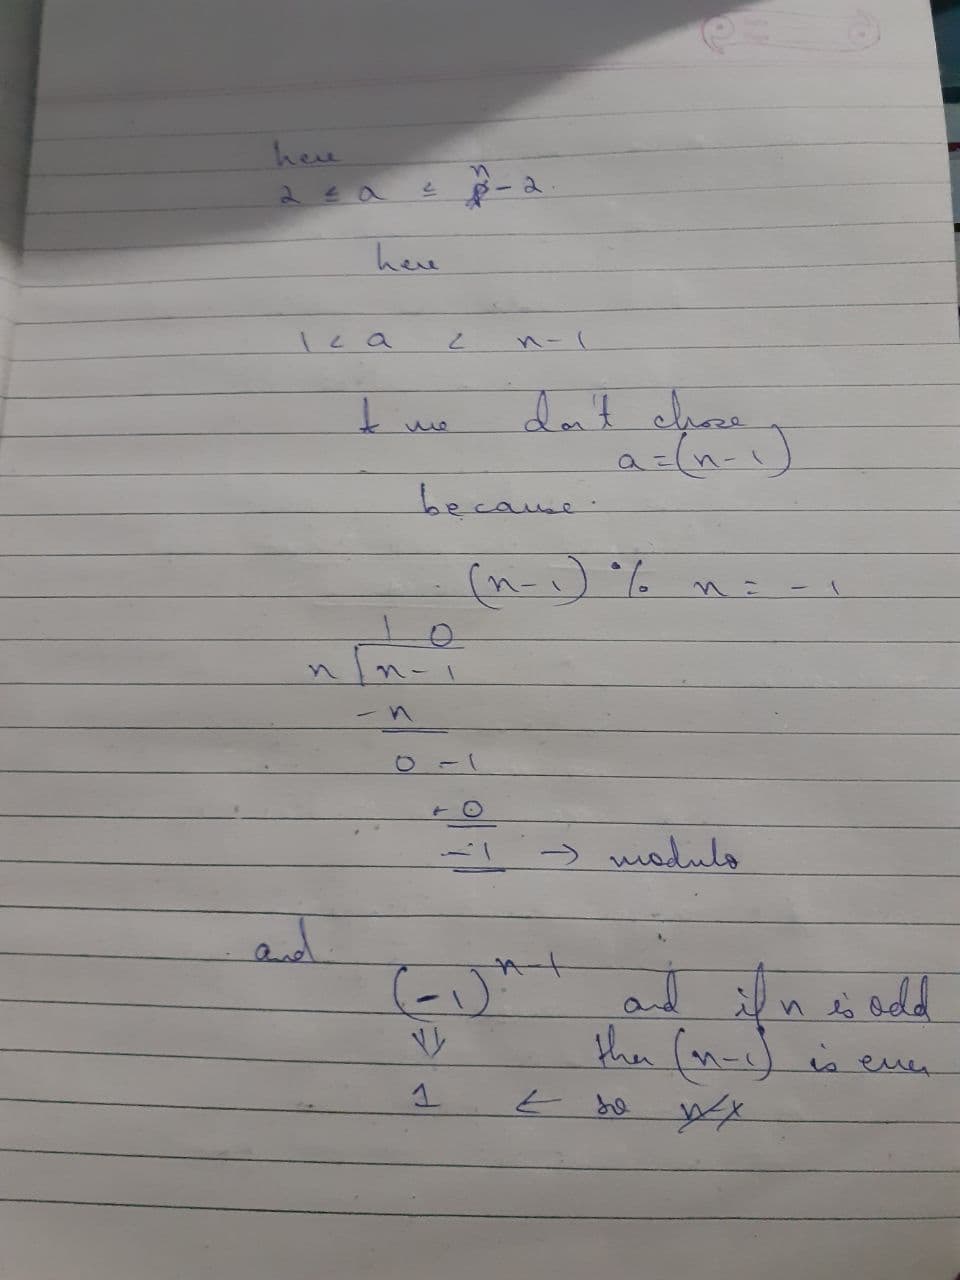 here
2 ≤ a ≤ n - 2.
here
1 < a < n - 1
& we don't chose
a = (n - 1)
because.
(n - 1) % n = - 1
1 0
n n - 1
- n
0 - 1
0
- 1 → modulo
and
(-1)^{n-1} and if n is odd
⇓ then (n-1) is even
1 ← so